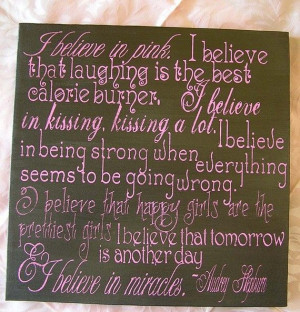 I believe in pink. I believe
that laughing is the best
calorie burner. I believe
in kissing, kissing a lot. I believe
in being strong when everything
seems to be going wrong.
I believe that happy girls are the
prettiest girls I believe that tomorrow
is another day
& I believe in miracles. ~Audrey Hepburn